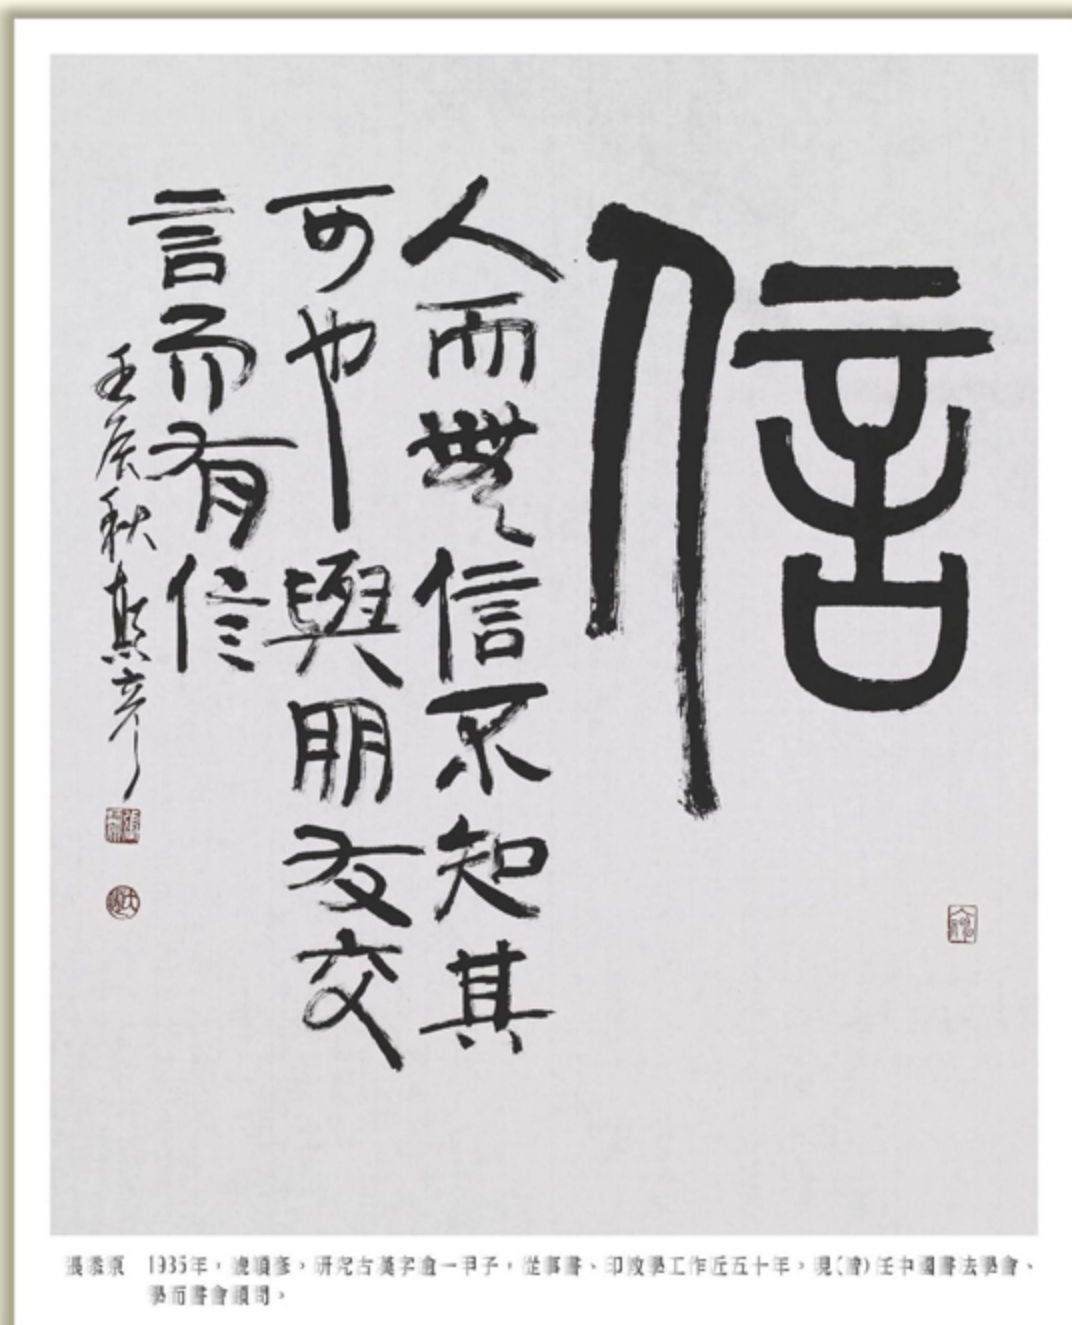 信
人而無信不知其
可也與朋友交
言而有信
壬辰秋
1935年，研究古漢字逾一甲子，從事書、印教學工作近五十年。現(曾)任中國書法學會、
學而書會顧問。